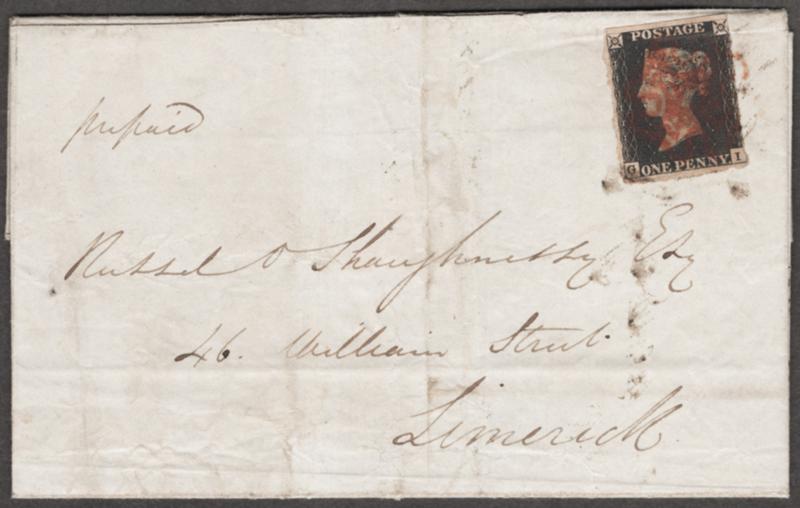 POSTAGE
prepaid
G ONE PENNY. I
Russel O Shaughnessy Esq
46. William Street
Limerick